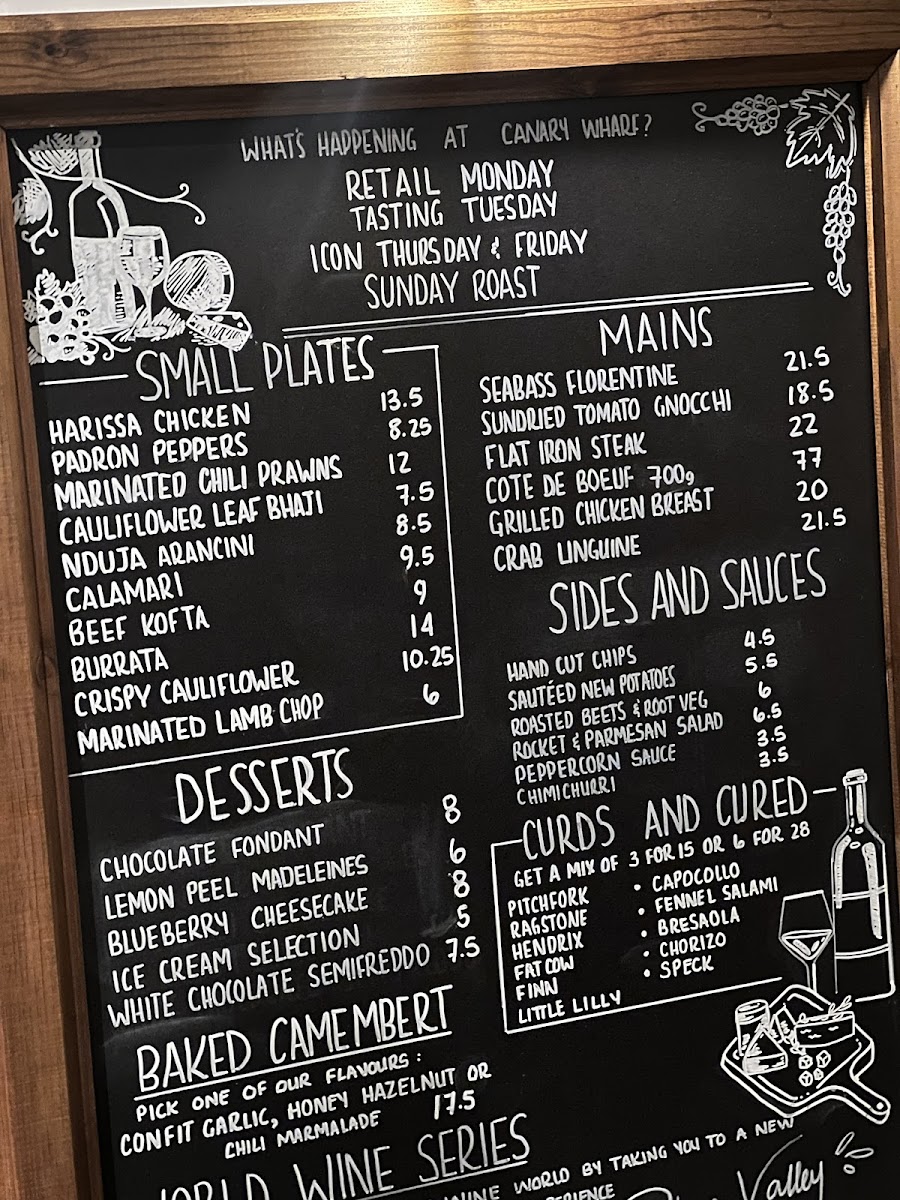 WHAT'S HAPPENING AT CANARY WHARF?
RETAIL MONDAY
TASTING TUESDAY
ICON THURSDAY & FRIDAY
SUNDAY ROAST
SMALL PLATES
HARISSA CHICKEN 13.5
PADRON PEPPERS 8.25
MARINATED CHILI PRAWNS 12
CAULIFLOWER LEAF BHAJI 7.5
NDUJA ARANCINI 8.5
CALAMARI 9.5
BEEF KOFTA 9
BURRATA 14
CRISPY CAULIFLOWER 10.25
MARINATED LAMB CHOP 6
MAINS
SEABASS FLORENTINE 21.5
SUNDRIED TOMATO GNOCCHI 18.5
FLAT IRON STEAK 22
COTE DE BOEUF 700g 77
GRILLED CHICKEN BREAST 20
CRAB LINGUINE 21.5
SIDES AND SAUCES
HAND CUT CHIPS 4.5
SAUTÉED NEW POTATOES 5.5
ROASTED BEETS & ROOT VEG 6
ROCKET & PARMESAN SALAD 6.5
PEPPERCORN SAUCE 3.5
CHIMICHURRI 3.5
DESSERTS
CHOCOLATE FONDANT 8
LEMON PEEL MADELEINES 6
BLUEBERRY CHEESECAKE 8
ICE CREAM SELECTION 5
WHITE CHOCOLATE SEMIFREDDO 7.5
CURDS AND CURED
GET A MIX OF 3 FOR 15 OR 6 FOR 28
PITCHFORK • CAPOCOLLO
RAGSTONE • FENNEL SALAMI
HENDRIX • BRESAOLA
FAT COW • CHORIZO
FINN • SPECK
LITTLE LILLY
BAKED CAMEMBERT
PICK ONE OF OUR FLAVOURS:
CONFIT GARLIC, HONEY HAZELNUT OR
CHILI MARMALADE 17.5
WORLD WINE SERIES
WINE WORLD BY TAKING YOU TO A NEW
Valley